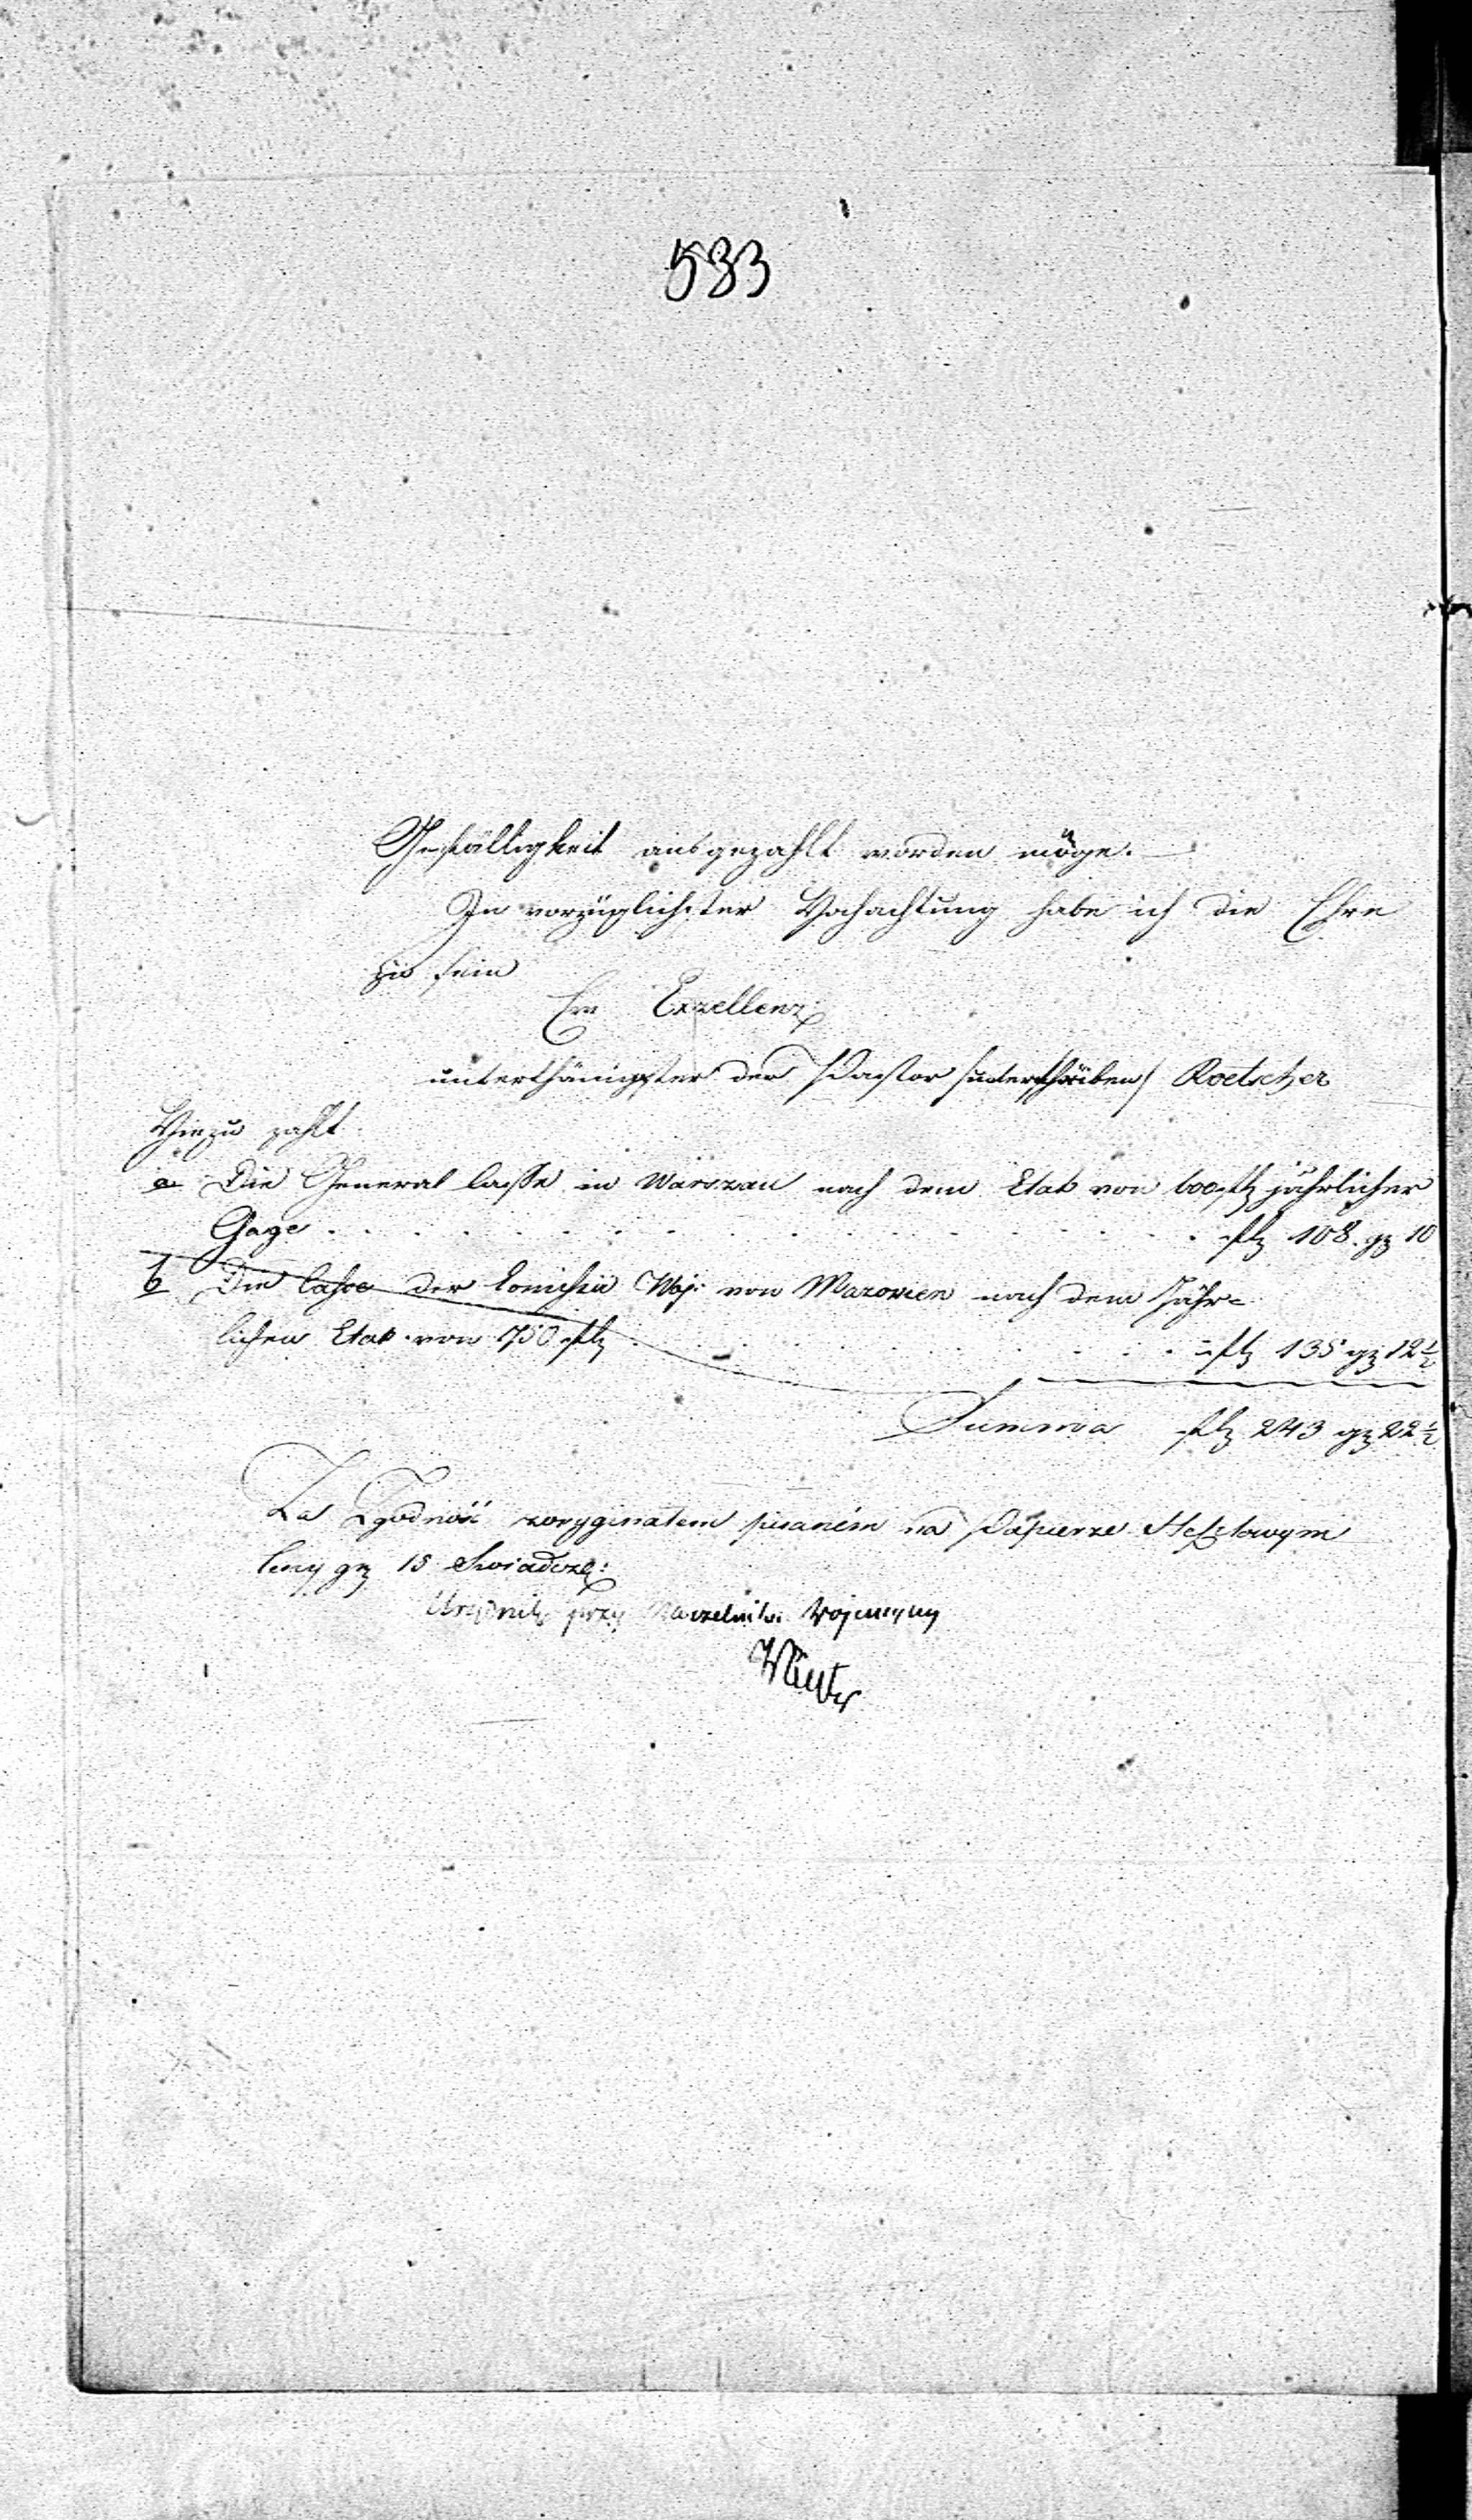 533
Gefälligkeit ausgezahlt werden möge.
In vorzüglichster Hochachtung habe ich die Ehre
zu sein
Ew Exzellenz
unterthänigster der Pastor /unterschrieben/ Roetscher
Hiezu zahlt
a Die General Casse in Warszau nach dem Etat von 600 flz jährlicher
Gage . . . . . . . . . . . . flz 108. gz 10
b Die Casse der Comissii Woj: von Mazovien nach dem Jähr=
lichen Etat von 750 flz . . . . . . . . flz 135 gz 12½
Summa flz 243 gz 22½
Za Zgodność z oryginałem pisaném na Papierze Stęplowym
Ceny gr 15 Swiadczę:
Urzędnik przy Naczelniku Wojennym